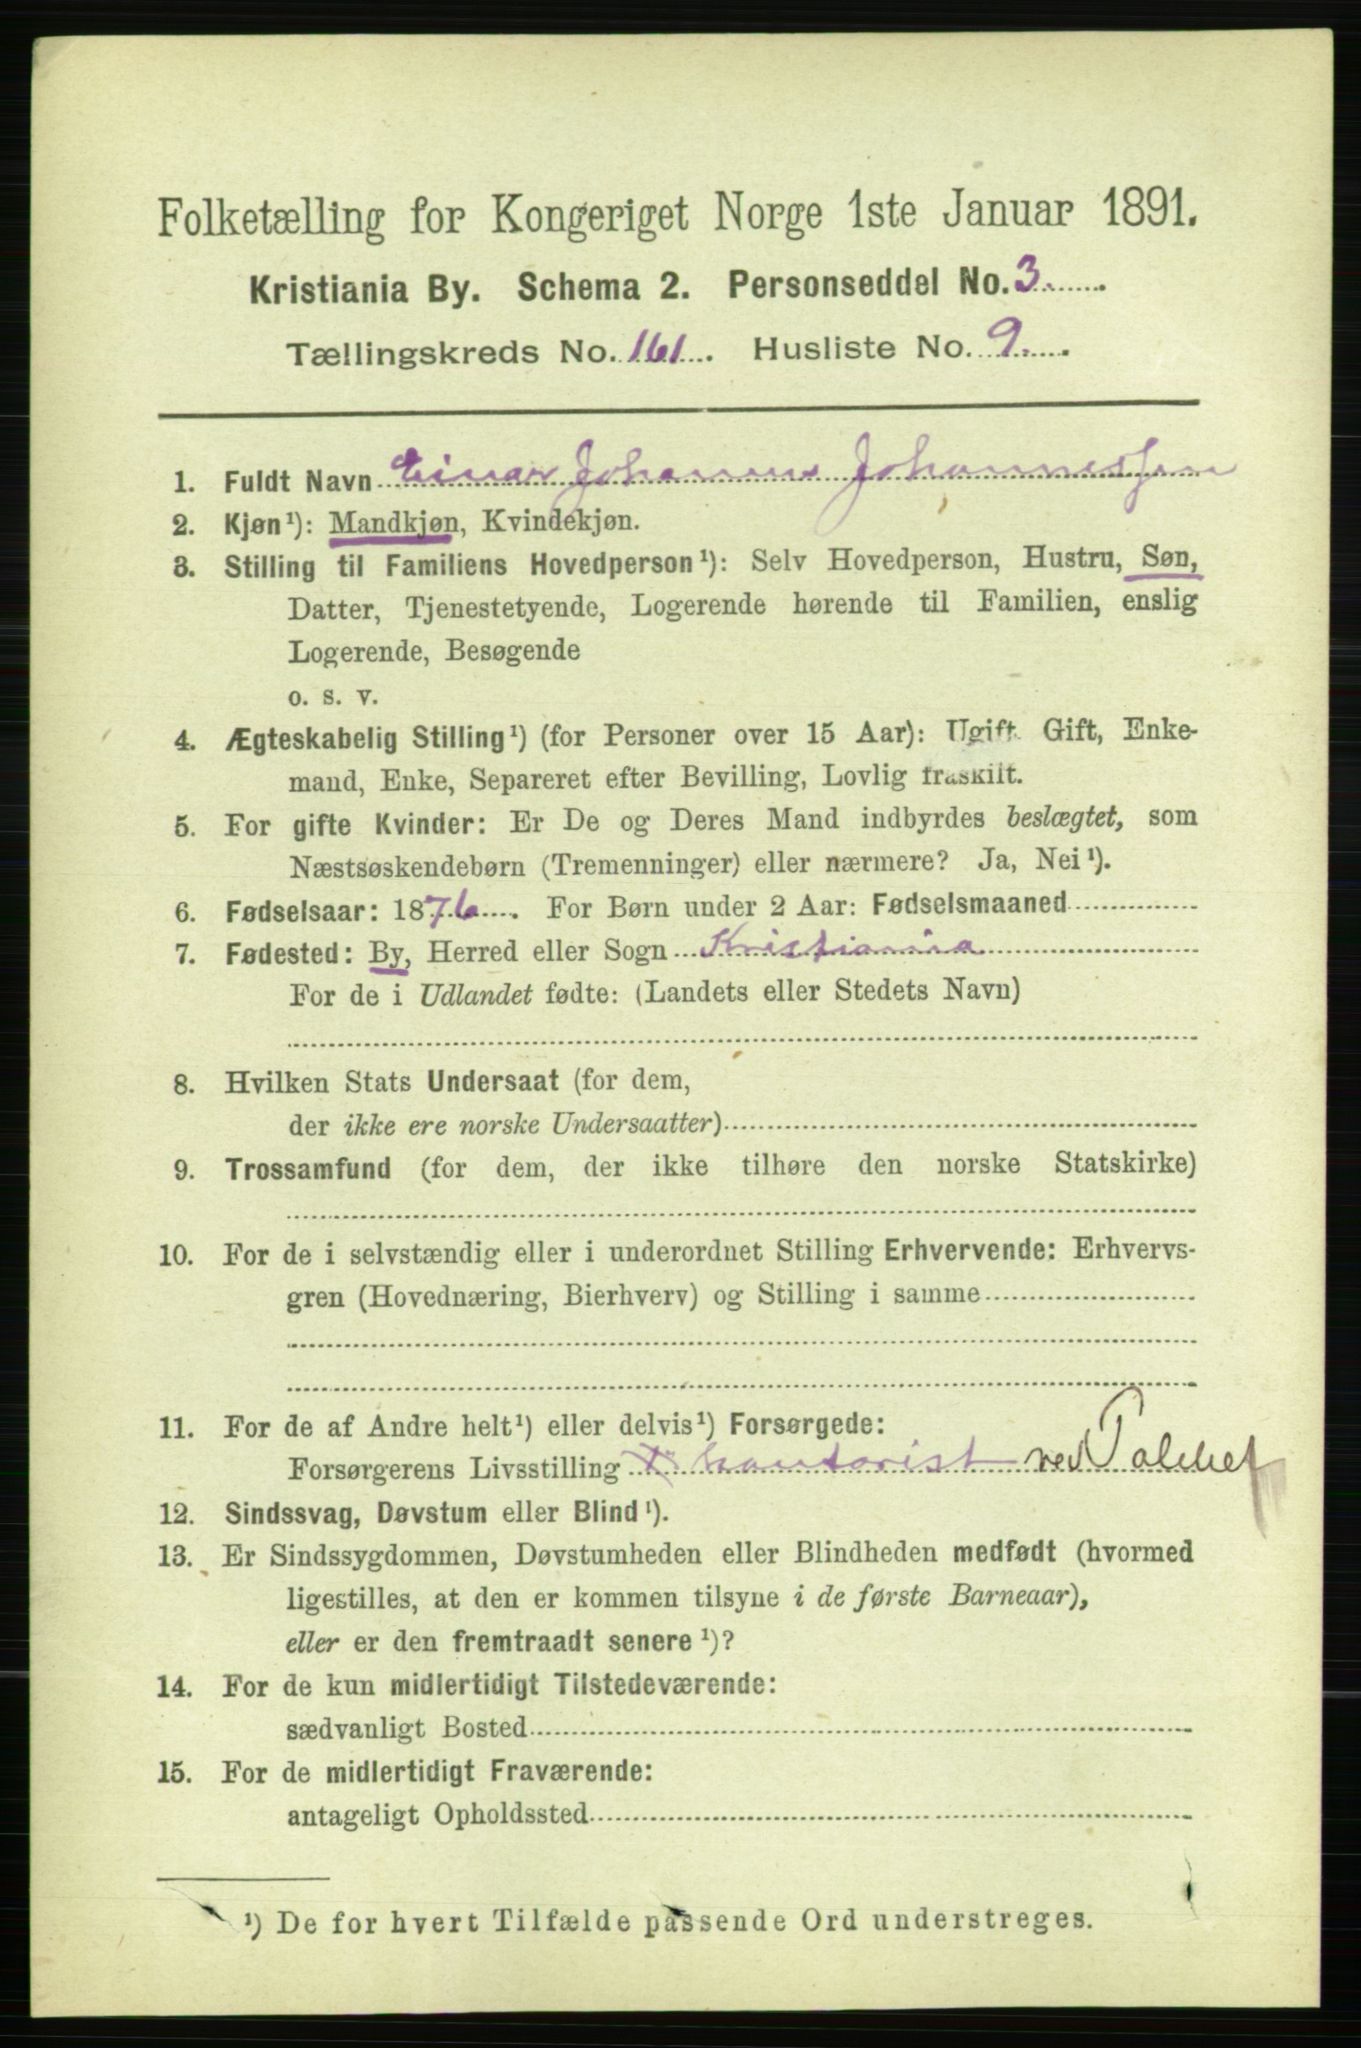 Folketælling for Kongeriget Norge 1ste Januar 1891.
Kristiania By. Schema 2. Personseddel No. 3
Tællingskreds No. 161. Husliste No. 9
1. Fuldt Navn Einar Johannes Johannessen
2. Kjøn¹): Mandkjøn, Kvindekjøn.
3. Stilling til Familiens Hovedperson¹): Selv Hovedperson, Hustru, Søn,
Datter, Tjenestetyende, Logerende hørende til Familien, enslig
Logerende, Besøgende
o. s. v.
4. Ægteskabelig Stilling¹) (for Personer over 15 Aar): Ugift. Gift, Enke-
mand, Enke, Separeret efter Bevilling, Lovlig fraskilt.
5. For gifte Kvinder: Er De og Deres Mand indbyrdes beslægtet, som
Næstsøskendebørn (Tremenninger) eller nærmere? Ja, Nei¹).
6. Fødselsaar: 1876. For Børn under 2 Aar: Fødselsmaaned
7. Fødested: By, Herred eller Sogn Kristiania
For de i Udlandet fødte: (Landets eller Stedets Navn)
8. Hvilken Stats Undersaat (for dem,
der ikke ere norske Undersaatter)
9. Trossamfund (for dem, der ikke tilhøre den norske Statskirke)
10. For de i selvstændig eller i underordnet Stilling Erhvervende: Erhvervs-
gren (Hovednæring, Bierhverv) og Stilling i samme
11. For de af Andre helt¹) eller delvis¹) Forsørgede:
Forsørgerens Livsstilling kontorist ved
12. Sindssvag, Døvstum eller Blind¹).
13. Er Sindssygdommen, Døvstumheden eller Blindheden medfødt (hvormed
ligestilles, at den er kommen tilsyne i de første Barneaar),
eller er den fremtraadt senere¹)?
14. For de kun midlertidigt Tilstedeværende:
sædvanligt Bosted
15. For de midlertidigt Fraværende:
antageligt Opholdssted
¹) De for hvert Tilfælde passende Ord understreges.